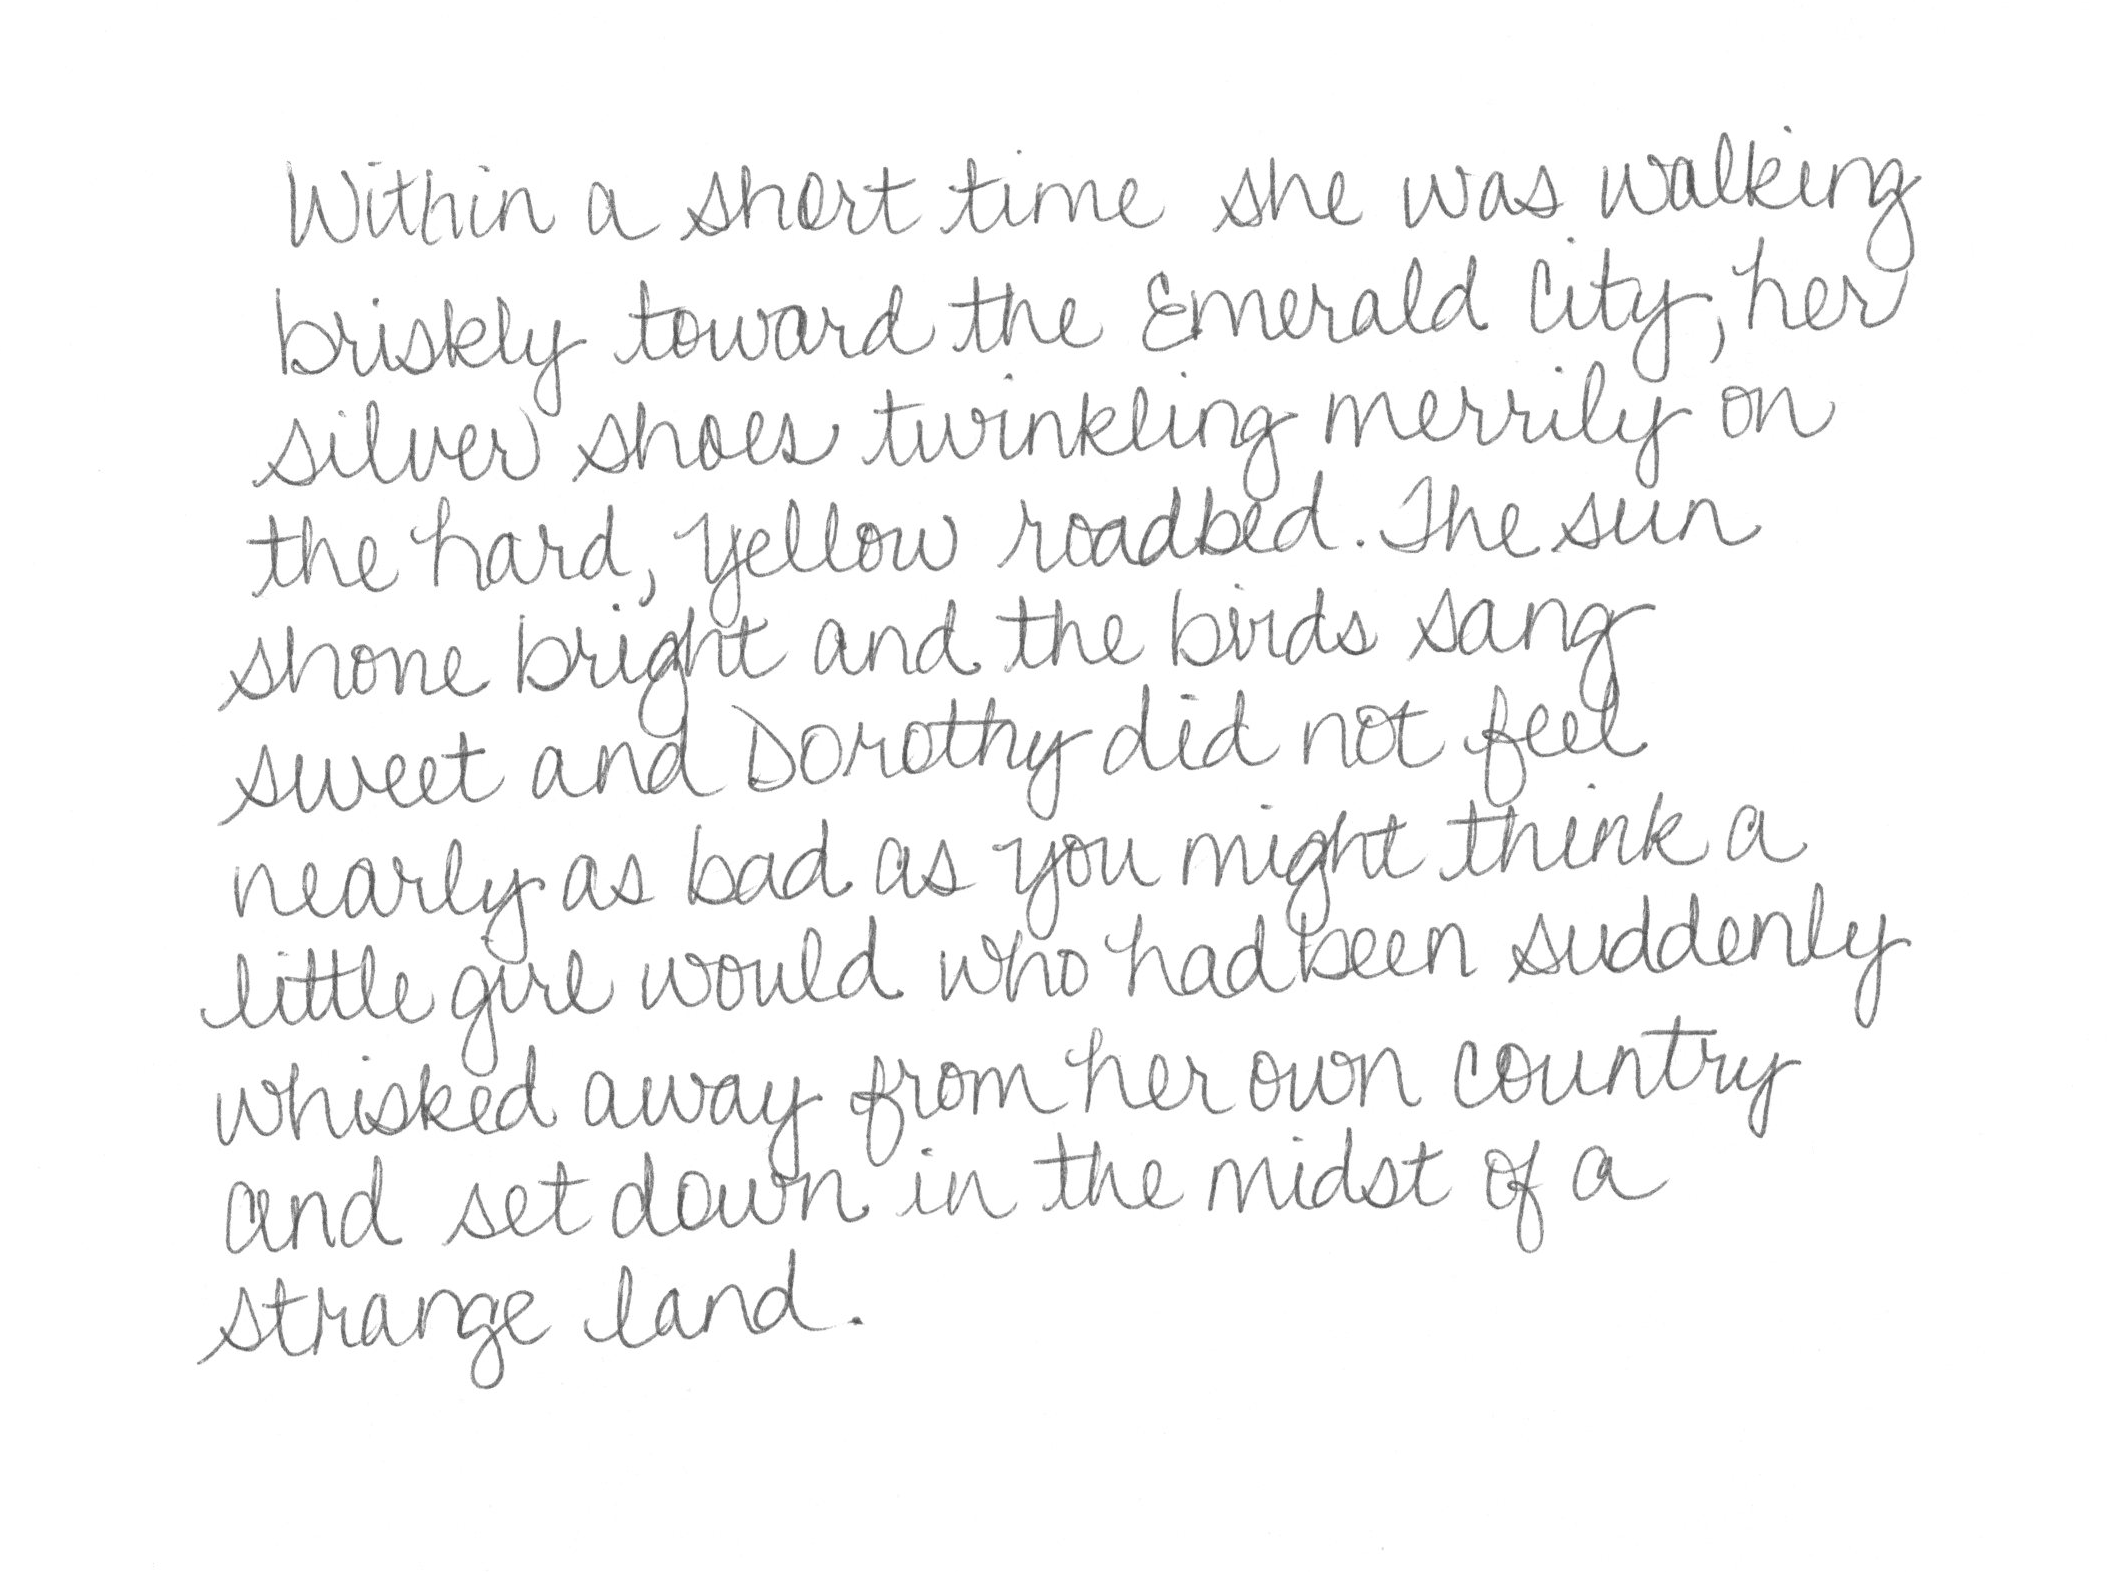 Within a short time she was walking
briskly toward the Emerald City, her
silver shoes twinkling merrily on
the hard, yellow roadbed. The sun
shone bright and the birds sang
sweet and Dorothy did not feel
nearly as bad as you might think a
little girl would who had been suddenly
whisked away from her own country
and set down in the midst of a
strange land.